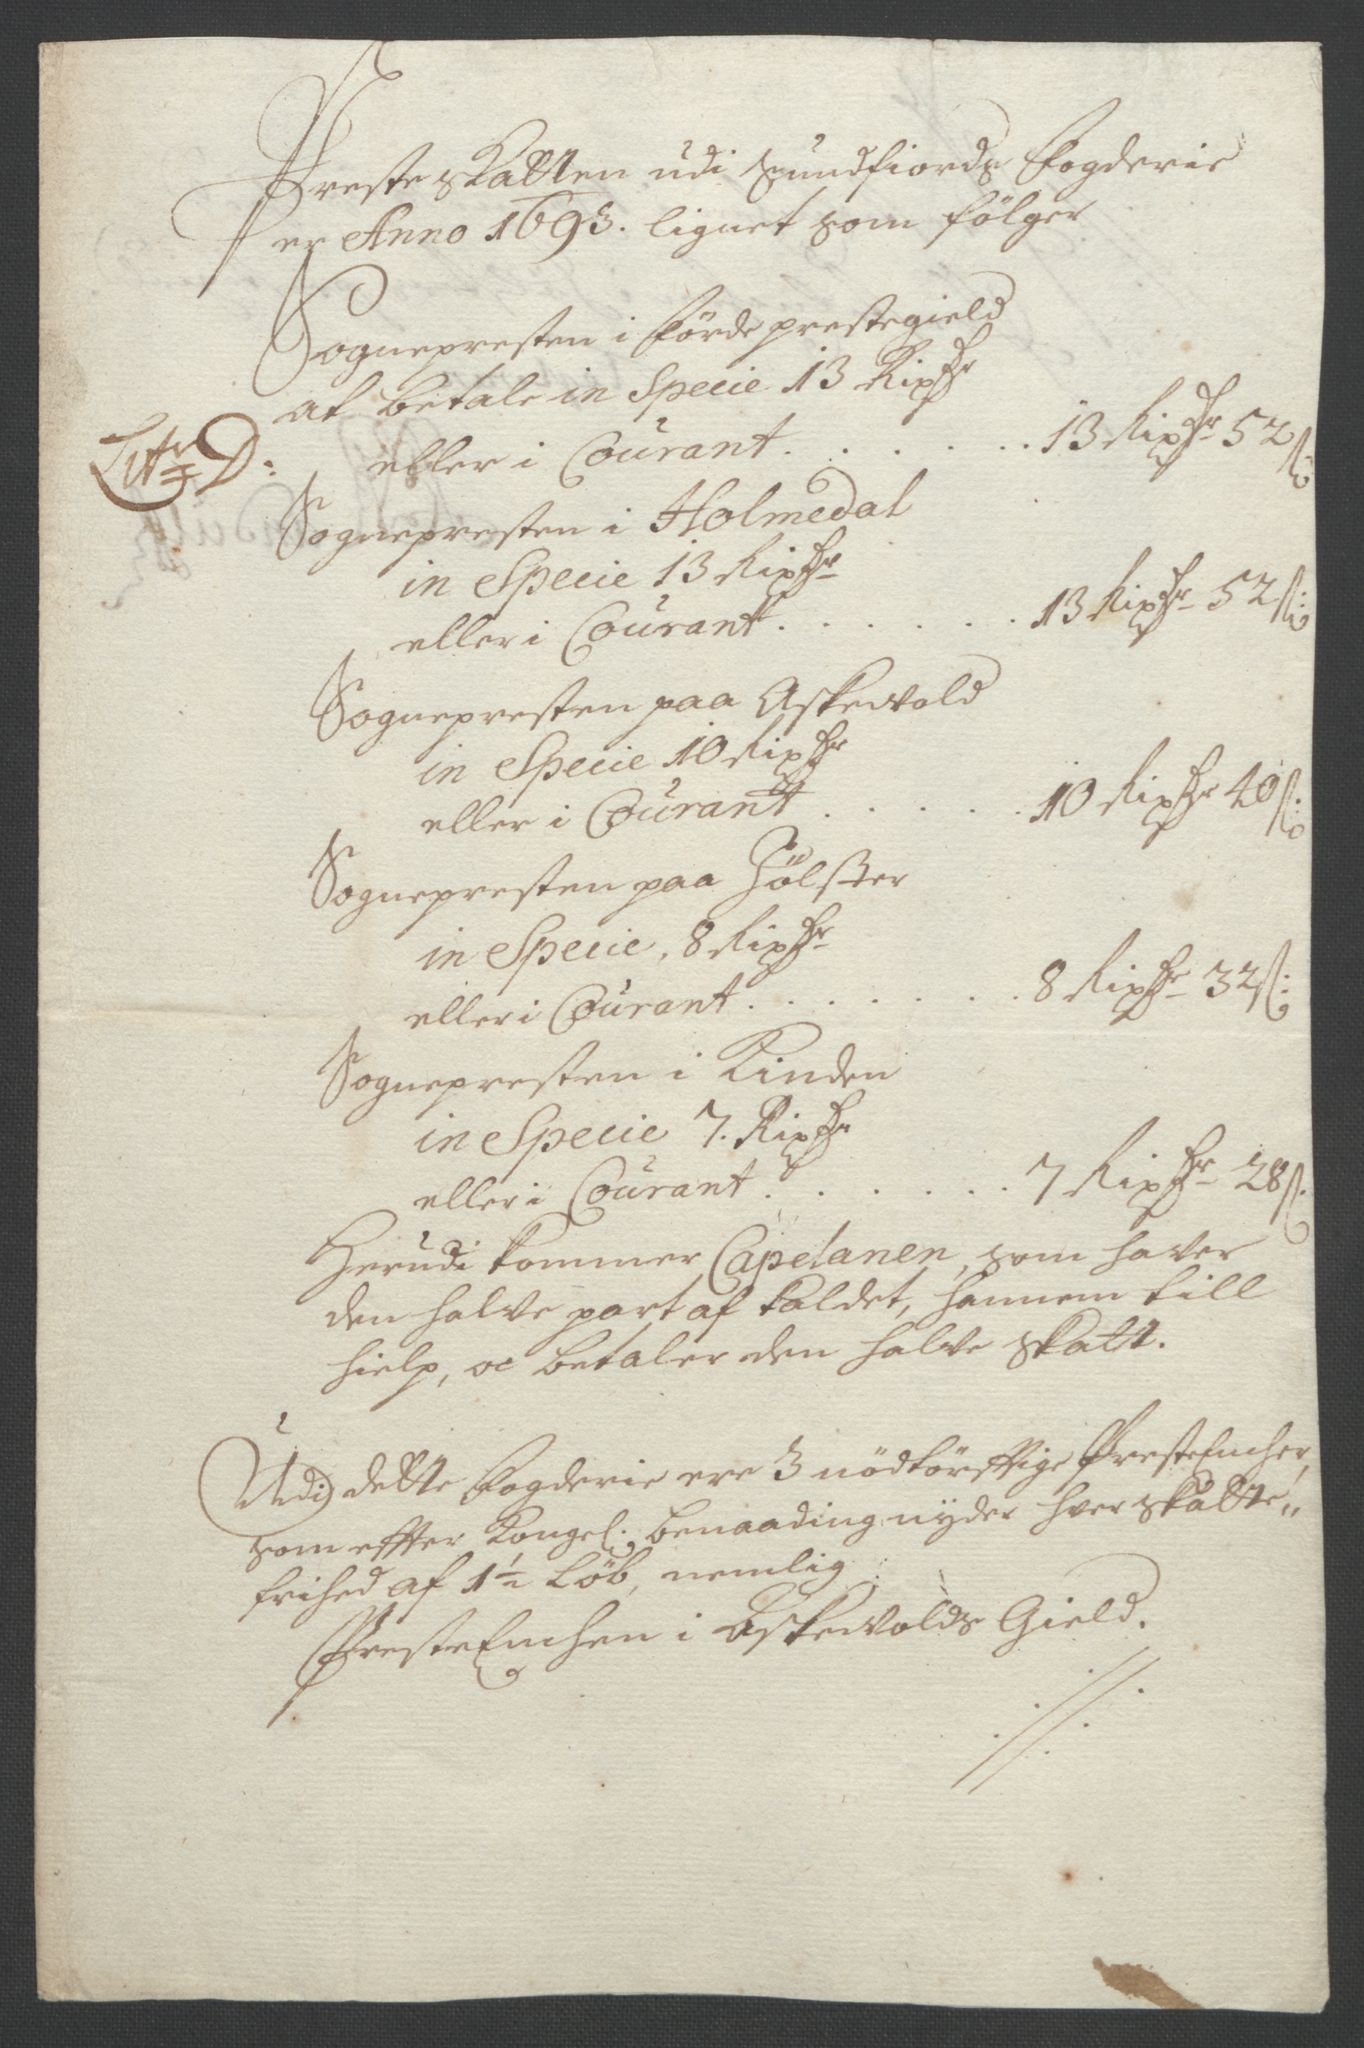 Preste Skatten udi Sundfiords Fogderie
er Anno 1693. lignet som følger
Sognepresten i Førde prestegield
at betale in Specie 13 Rixdr
Litr D:
eller i Courant . . . . . . 13 Rixdr 52 s:
Sognepresten i Holmedal
in Specie 13 Rixdr
eller i Courant . . . . . . 13 Rixdr 52 s:
Sognepresten paa Askevold
in Specie 10 Rixdr
eller i Courant . . . . . 10 Rixdr 40 s:
Sognepresten paa Jølster
in Specie, 8 Rixdr
eller i Courant . . . . . . . 8 Rixdr 32 s:
Sognepresten i Kinden
in Specie 7. Rixdr
eller i Courant . . . . . . 7 Rixdr 28 s.
Herudi kommer Capelanen, som haver
den halve part af Kaldet, hannem till
hielp, oc betaler den halve Skatt.
Udj dette Fogderie ere 3 nödtörfftige PresteEncher,
som effter Kongel: benaading nyder hver skatte"
frihed af 1½ Löb, nemlig
PresteEnchen i Askevolds Gield.